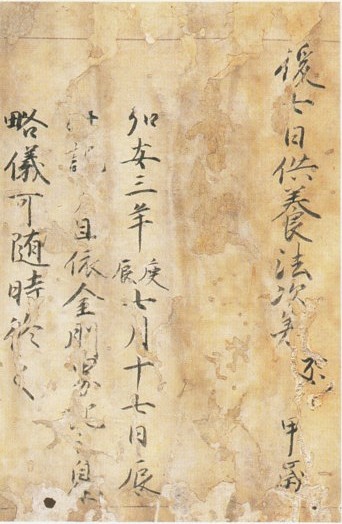 後七日供養法次第 甲
弘安三年庚辰七月十七日辰
記 且依金剛界
略儀可随時修之